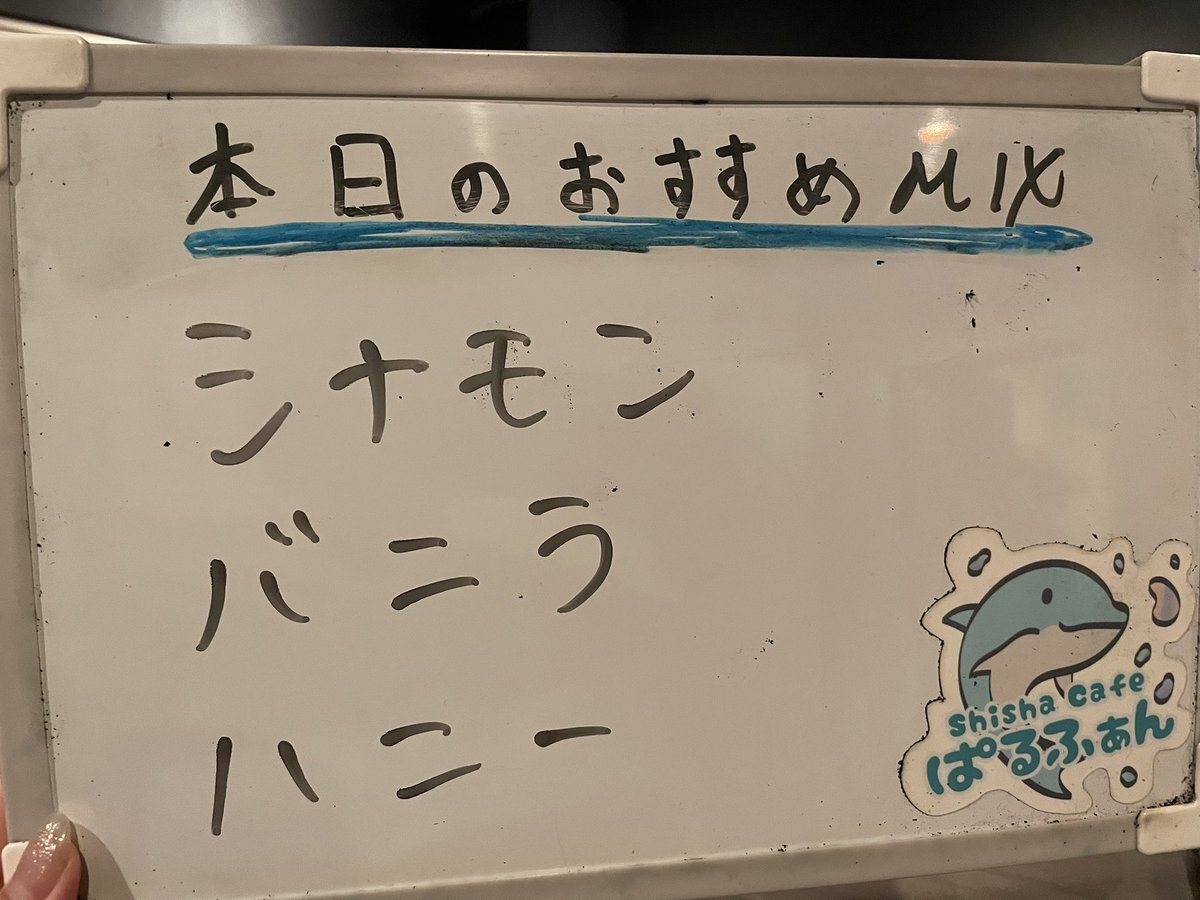 本日のおすすめMIX
シナモン
バニラ
ハニー
Shisha Cafe
ぱるふぁん